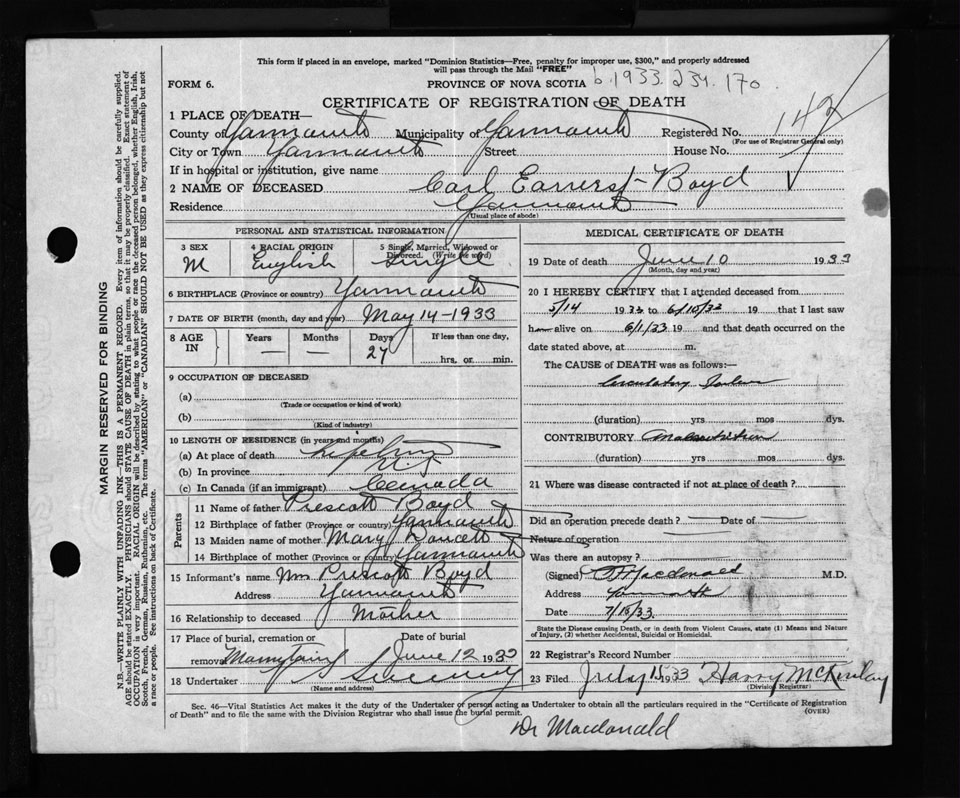 This form if placed in an envelope, marked "Dominion Statistics—Free, penalty for improper use, $300," and properly addressed
will pass through the Mail "FREE"
b 1933. 234. 170
FORM 6.
PROVINCE OF NOVA SCOTIA
CERTIFICATE OF REGISTRATION OF DEATH
1 PLACE OF DEATH—
County of Yarmouth Municipality of Yarmouth Registered No. 142
(For use of Registrar General only)
City or Town Yarmouth Street House No.
If in hospital or institution, give name
2 NAME OF DECEASED Carl Earnest Boyd
Residence Yarmouth
(Usual place of abode)
PERSONAL AND STATISTICAL INFORMATION
3 SEX 4 RACIAL ORIGIN 5 Single, Married, Widowed or Divorced. (Write the word)
M English Single
6 BIRTHPLACE (Province or country) Yarmouth
7 DATE OF BIRTH (month, day and year) May 14-1933
8 AGE IN Years Months Days If less than one day,
— — 27 hrs. or min.
9 OCCUPATION OF DECEASED
(a)
(Trade or occupation or kind of work)
(b)
(Kind of industry)
10 LENGTH OF RESIDENCE (in years and months)
(a) At place of death lifetime
(b) In province N.S
(c) In Canada (if an immigrant) Canada
Parents
11 Name of father Prescott Boyd
12 Birthplace of father (Province or country) Yarmouth
13 Maiden name of mother Mary Doucett
14 Birthplace of mother (Province or country) Yarmouth
15 Informant's name Mrs Prescott Boyd
Address Yarmouth
16 Relationship to deceased Mother
17 Place of burial, cremation or Date of burial
removal June 12 1933
18 Undertaker Sweeney
(Name and address)
MEDICAL CERTIFICATE OF DEATH
19 Date of death June 10 1933
(Month, day and year)
20 I HEREBY CERTIFY that I attended deceased from
5/14 1933 to 6/10/33 19 that I last saw
h alive on 6/1/33 19 and that death occurred on
date stated above, at m.
The CAUSE OF DEATH was as follows:—
Circulatory Failure
(duration) yrs mos dys.
CONTRIBUTORY Malnutrition
(duration) yrs mos dys.
21 Where was disease contracted if not at place of death?
Did an operation precede death? Date of
Nature of operation
Was there an autopsy?
(Signed) Macdonald M.D.
Address Yarmouth
Date 7/15/33.
State the Disease causing Death, or in death from Violent Causes, state (1) Means and Nature
of Injury, (2) whether Accidental, Suicidal or Homicidal.
22 Registrar's Record Number
23 Filed July 15 1933 Harry McKinlay
(Division Registrar)
Sec. 46—Vital Statistics Act makes it the duty of the Undertaker or person acting as Undertaker to obtain all the particulars required in the "Certificate of Registration
of Death" and to file the same with the Division Registrar who shall issue the burial permit.
(OVER)
Dr Macdonald
MARGIN RESERVED FOR BINDING
N.B.—WRITE PLAINLY WITH UNFADING INK—THIS IS A PERMANENT RECORD. Every item of information should be carefully supplied.
AGE should be stated EXACTLY. PHYSICIANS should STATE CAUSE OF DEATH in plain terms, so that it may be properly classified. Exact statement of
OCCUPATION is very important. RACIAL ORIGIN will be described by stating to what people or race the deceased person belonged, whether English, Irish,
Scotch, French, German, Russian, Ruthenian, etc. The terms "AMERICAN" or "CANADIAN" SHOULD NOT BE USED as they express citizenship but not
a race or people. See instructions on back of Certificate.